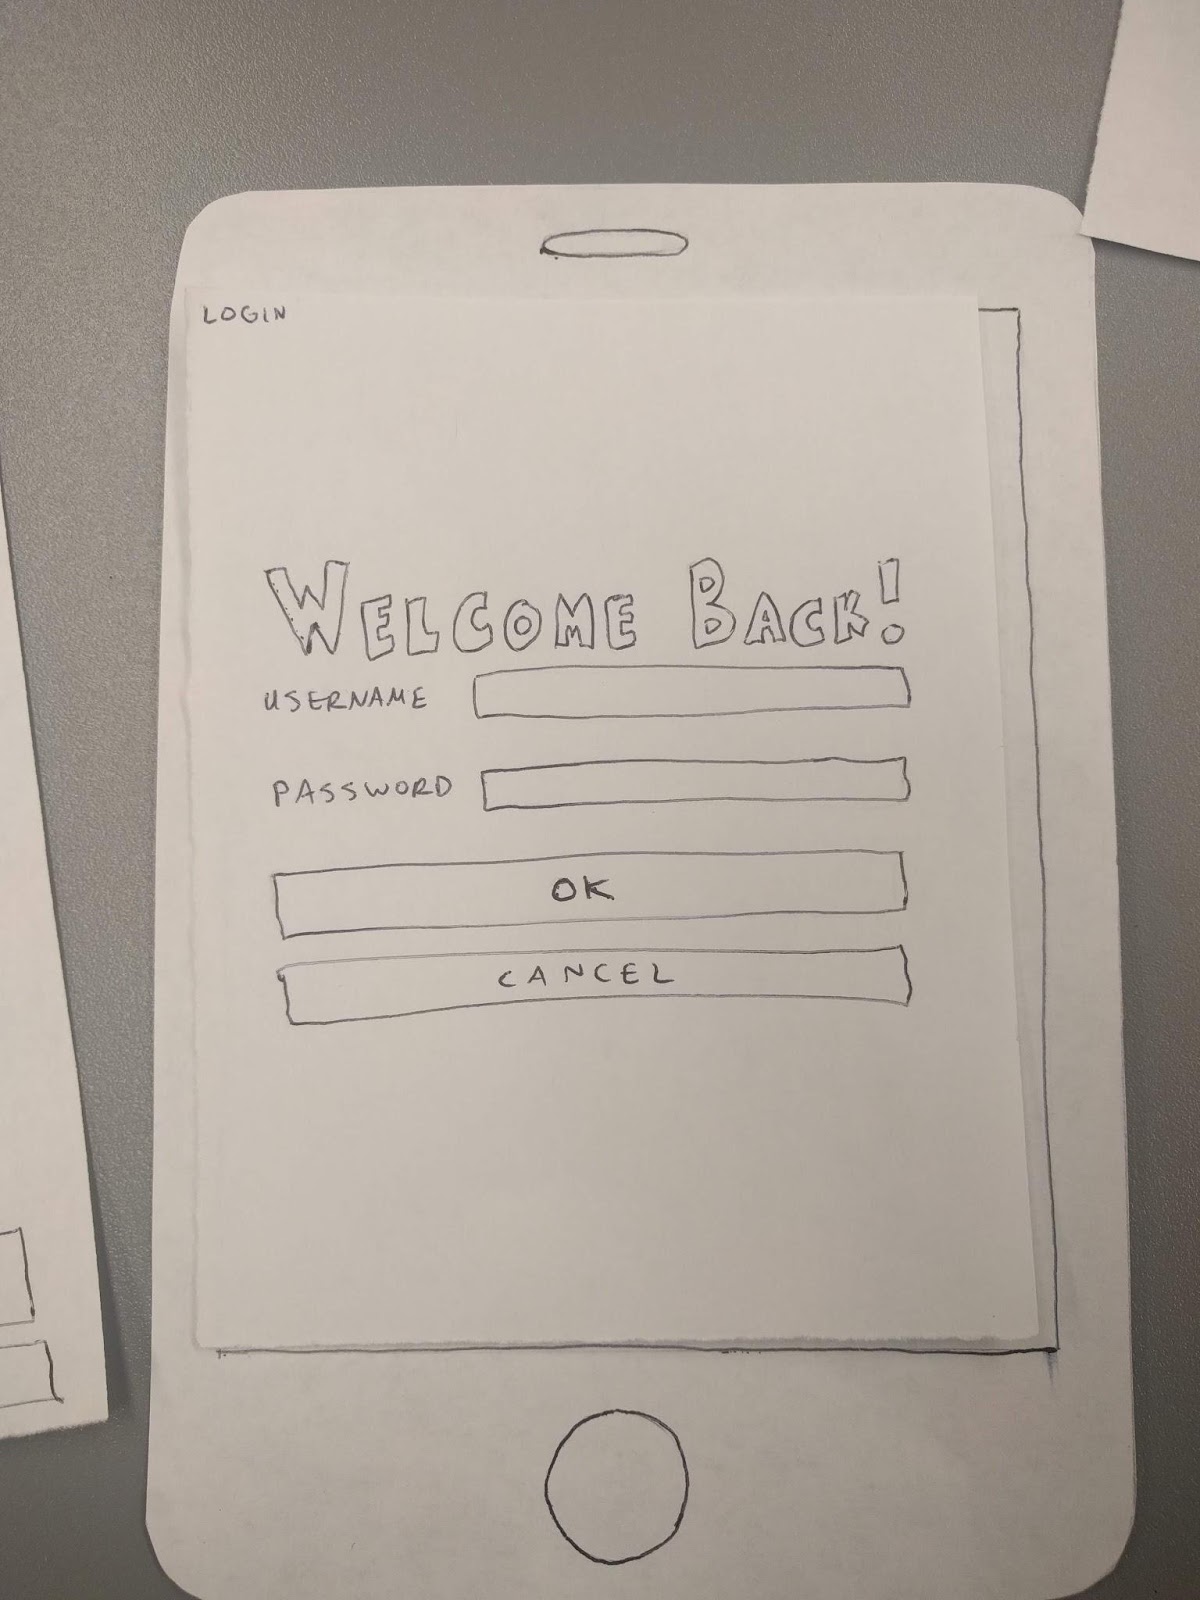 LOGIN
WELCOME BACK!
USERNAME
PASSWORD
OK
CANCEL